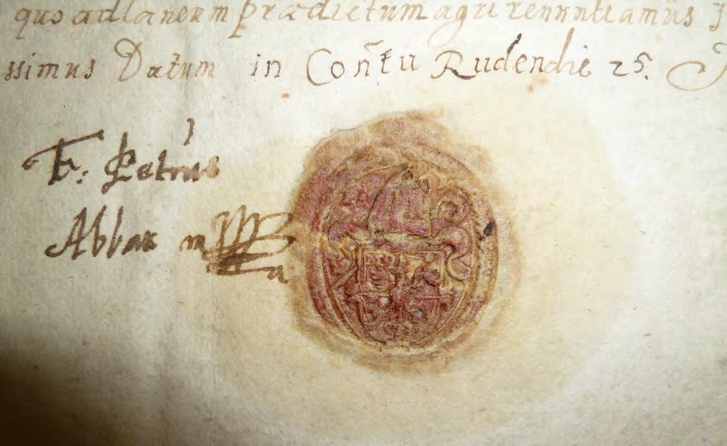 quo ad laneum prædictum agri renuntiamus
ssimus Datum in Con̄tu Rudendie 25.
F: Petrus
Abbas